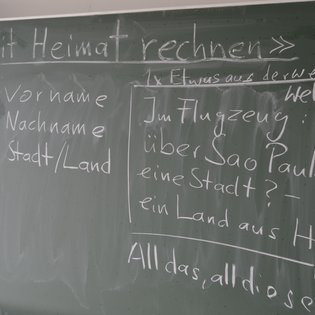 it Heimat rechnen »
1x Etwas aus der We
Vorname
Nachname
Stadt/Land
Wel
Im Flugzeug:
über Sao Paul
eine Stadt? –
ein Land aus H
All das, all diose